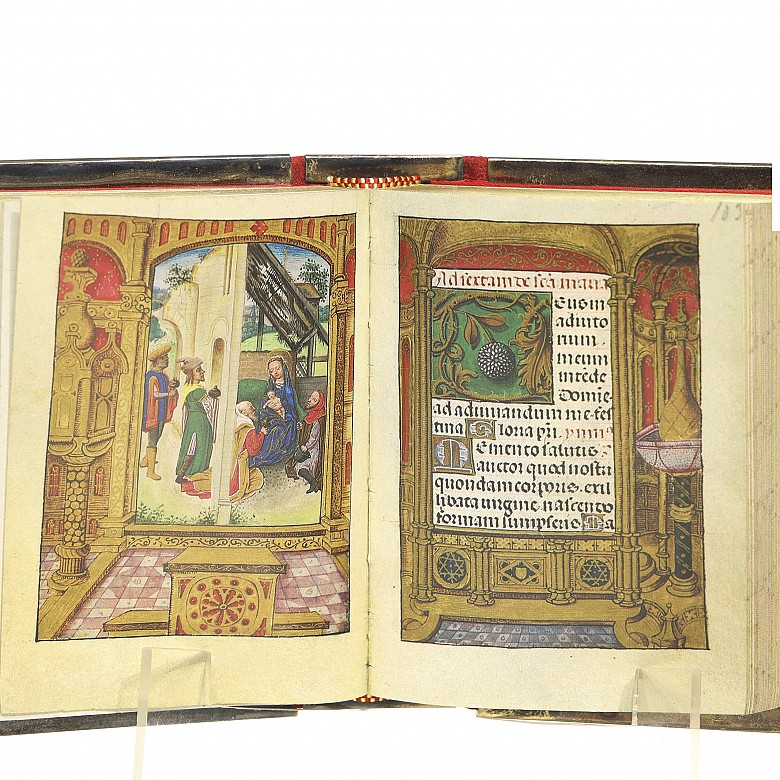 103
Ad sextam de sca maria
Deus in
adiuto
rium
meum
intede
Domie
ad adiuuandum me fes
tina Gloria pri. ymnꝰ
Memento salutis
auctor quod nostri
quondam corporis. exil
libata uirgine nascendo
formam sumpseris Ma